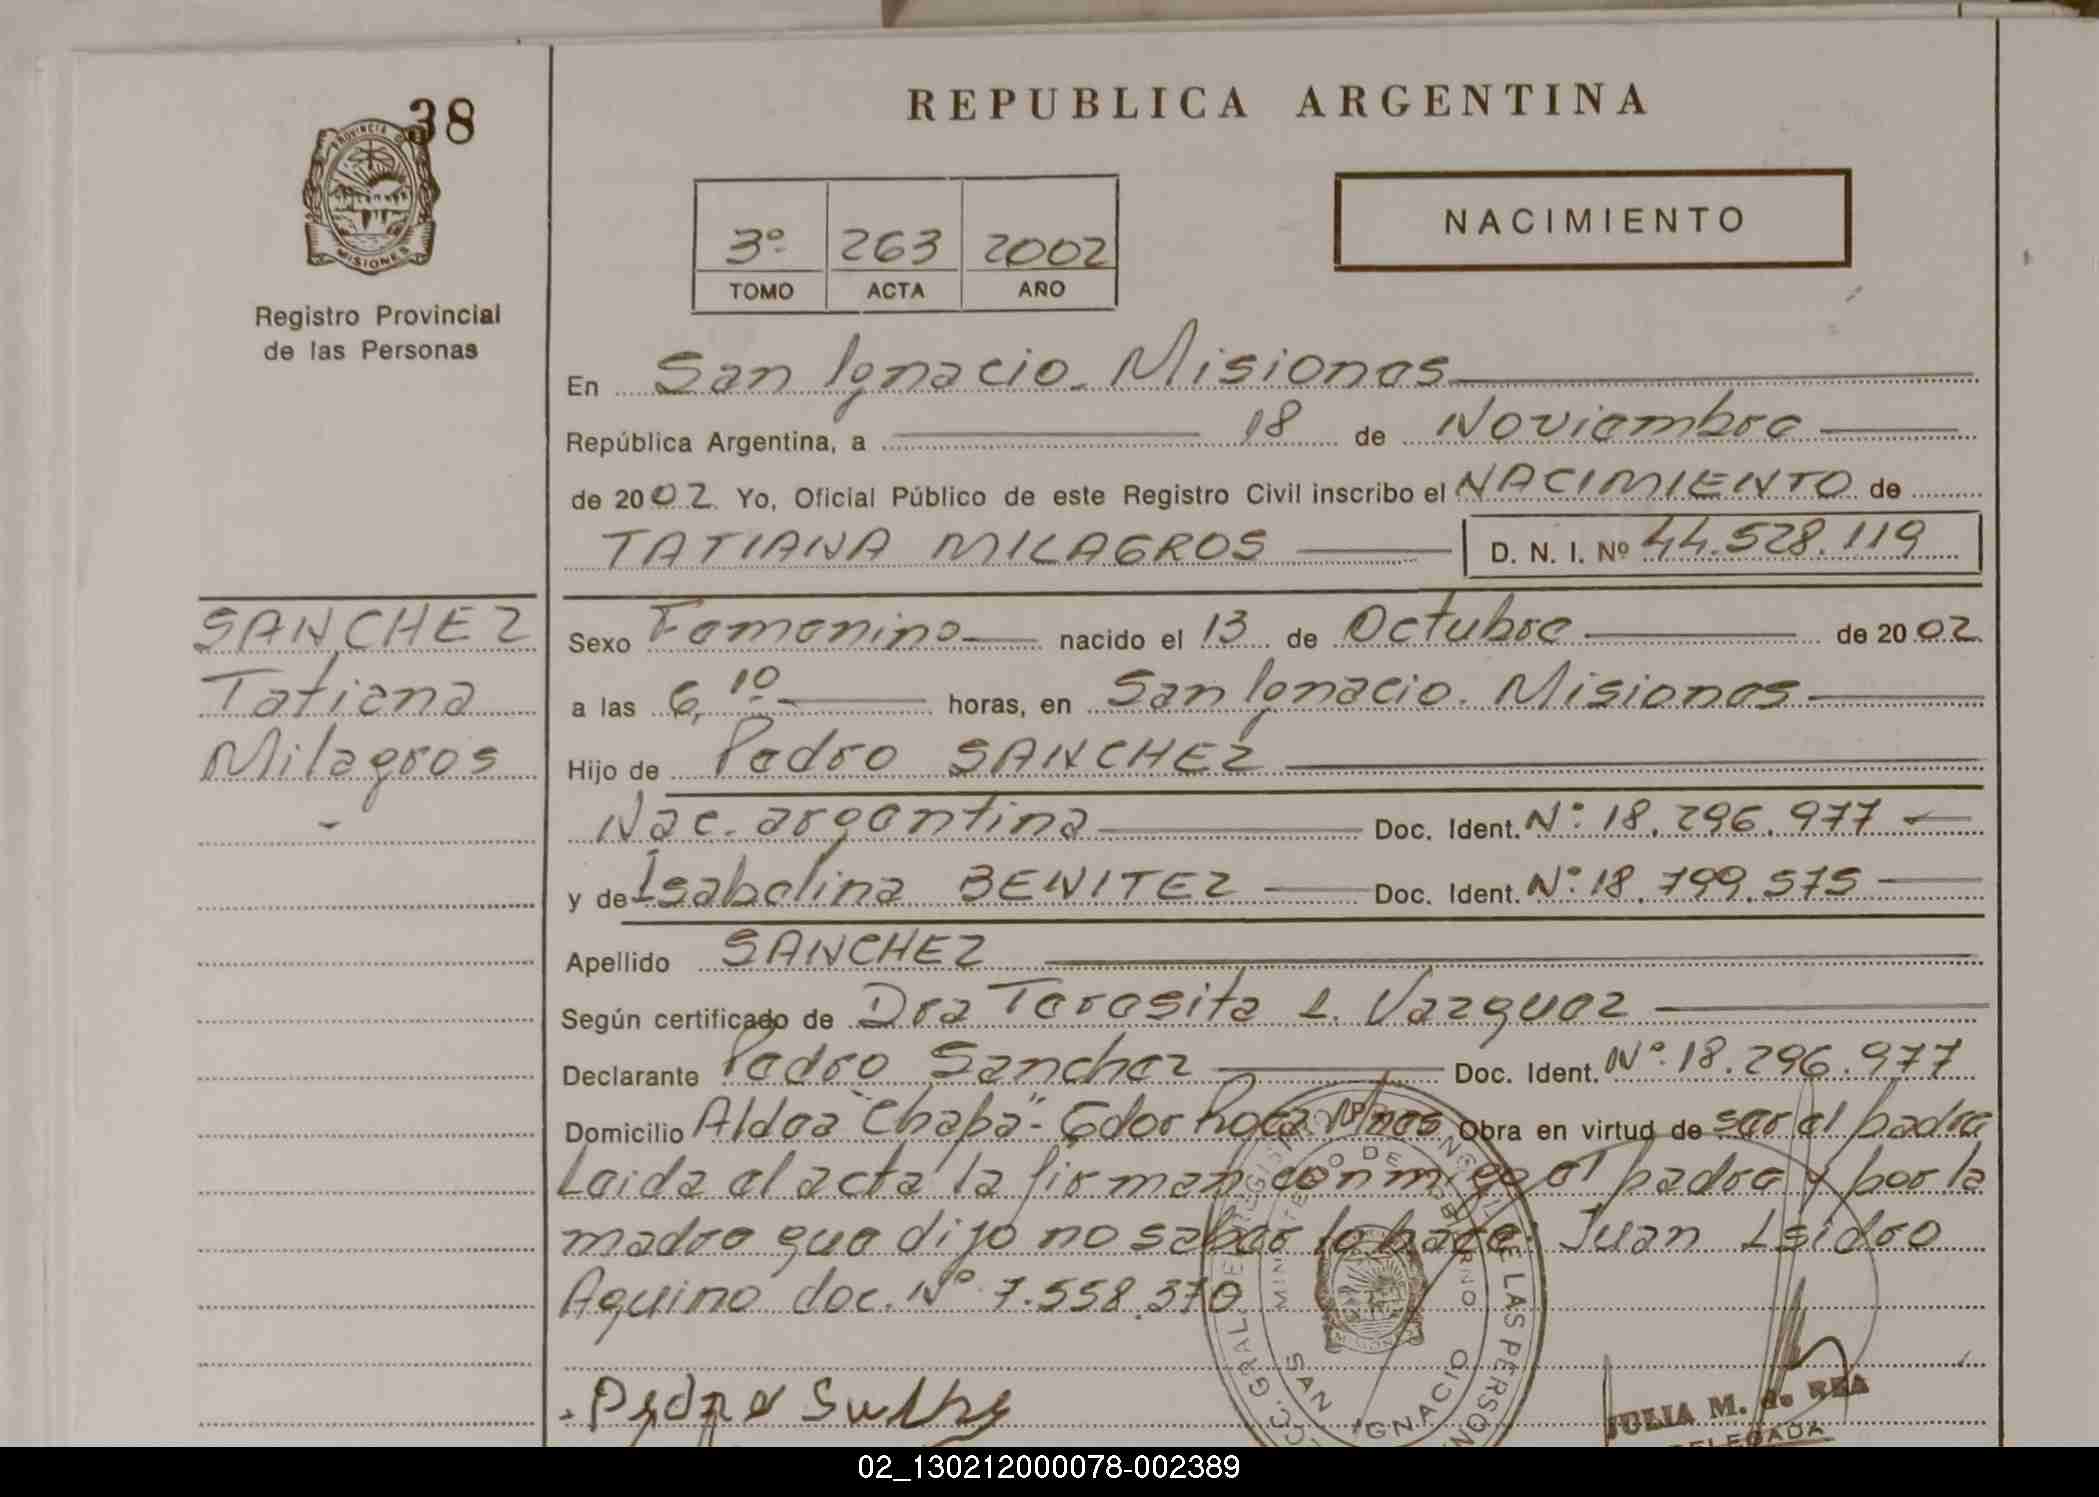 38
PROVINCIA DE
MISIONES
Registro Provincial
de las Personas
REPUBLICA ARGENTINA
3º 263 2002
TOMO ACTA AÑO
NACIMIENTO
En San Ignacio. Misiones
República Argentina, a 18 de Noviembre
de 2002 Yo, Oficial Público de este Registro Civil inscribo el NACIMIENTO de
TATIANA MILAGROS D. N. I. Nº 44.528.119
SANCHEZ
Tatiana
Milagros
Sexo Femenino nacido el 13 de Octubre de 2002
a las 6,10 horas, en San Ignacio. Misiones
Hijo de Pedro SANCHEZ
Nac. argentina Doc. Ident. Nº 18.296.977
y de Isabelina BENITEZ Doc. Ident. Nº 18.799.575
Apellido SANCHEZ
Según certificado de Dra Teresita L. Vazquez
Declarante Pedro Sanchez Doc. Ident. Nº 18.296.977
Domicilio Aldea "Chapa" - Gdor Roca Mnes Obra en virtud de ser el padre
Leida el acta la firman conmigo el padre y por la
madre que dijo no saber lo hace: Juan Isidro
Aquino doc. Nº 7.558.370
MINISTERIO DE GOBIERNO
DE LAS PERSONAS
SAN IGNACIO
JULIA M. de REA
DELEGADA
02_130212000078-002389